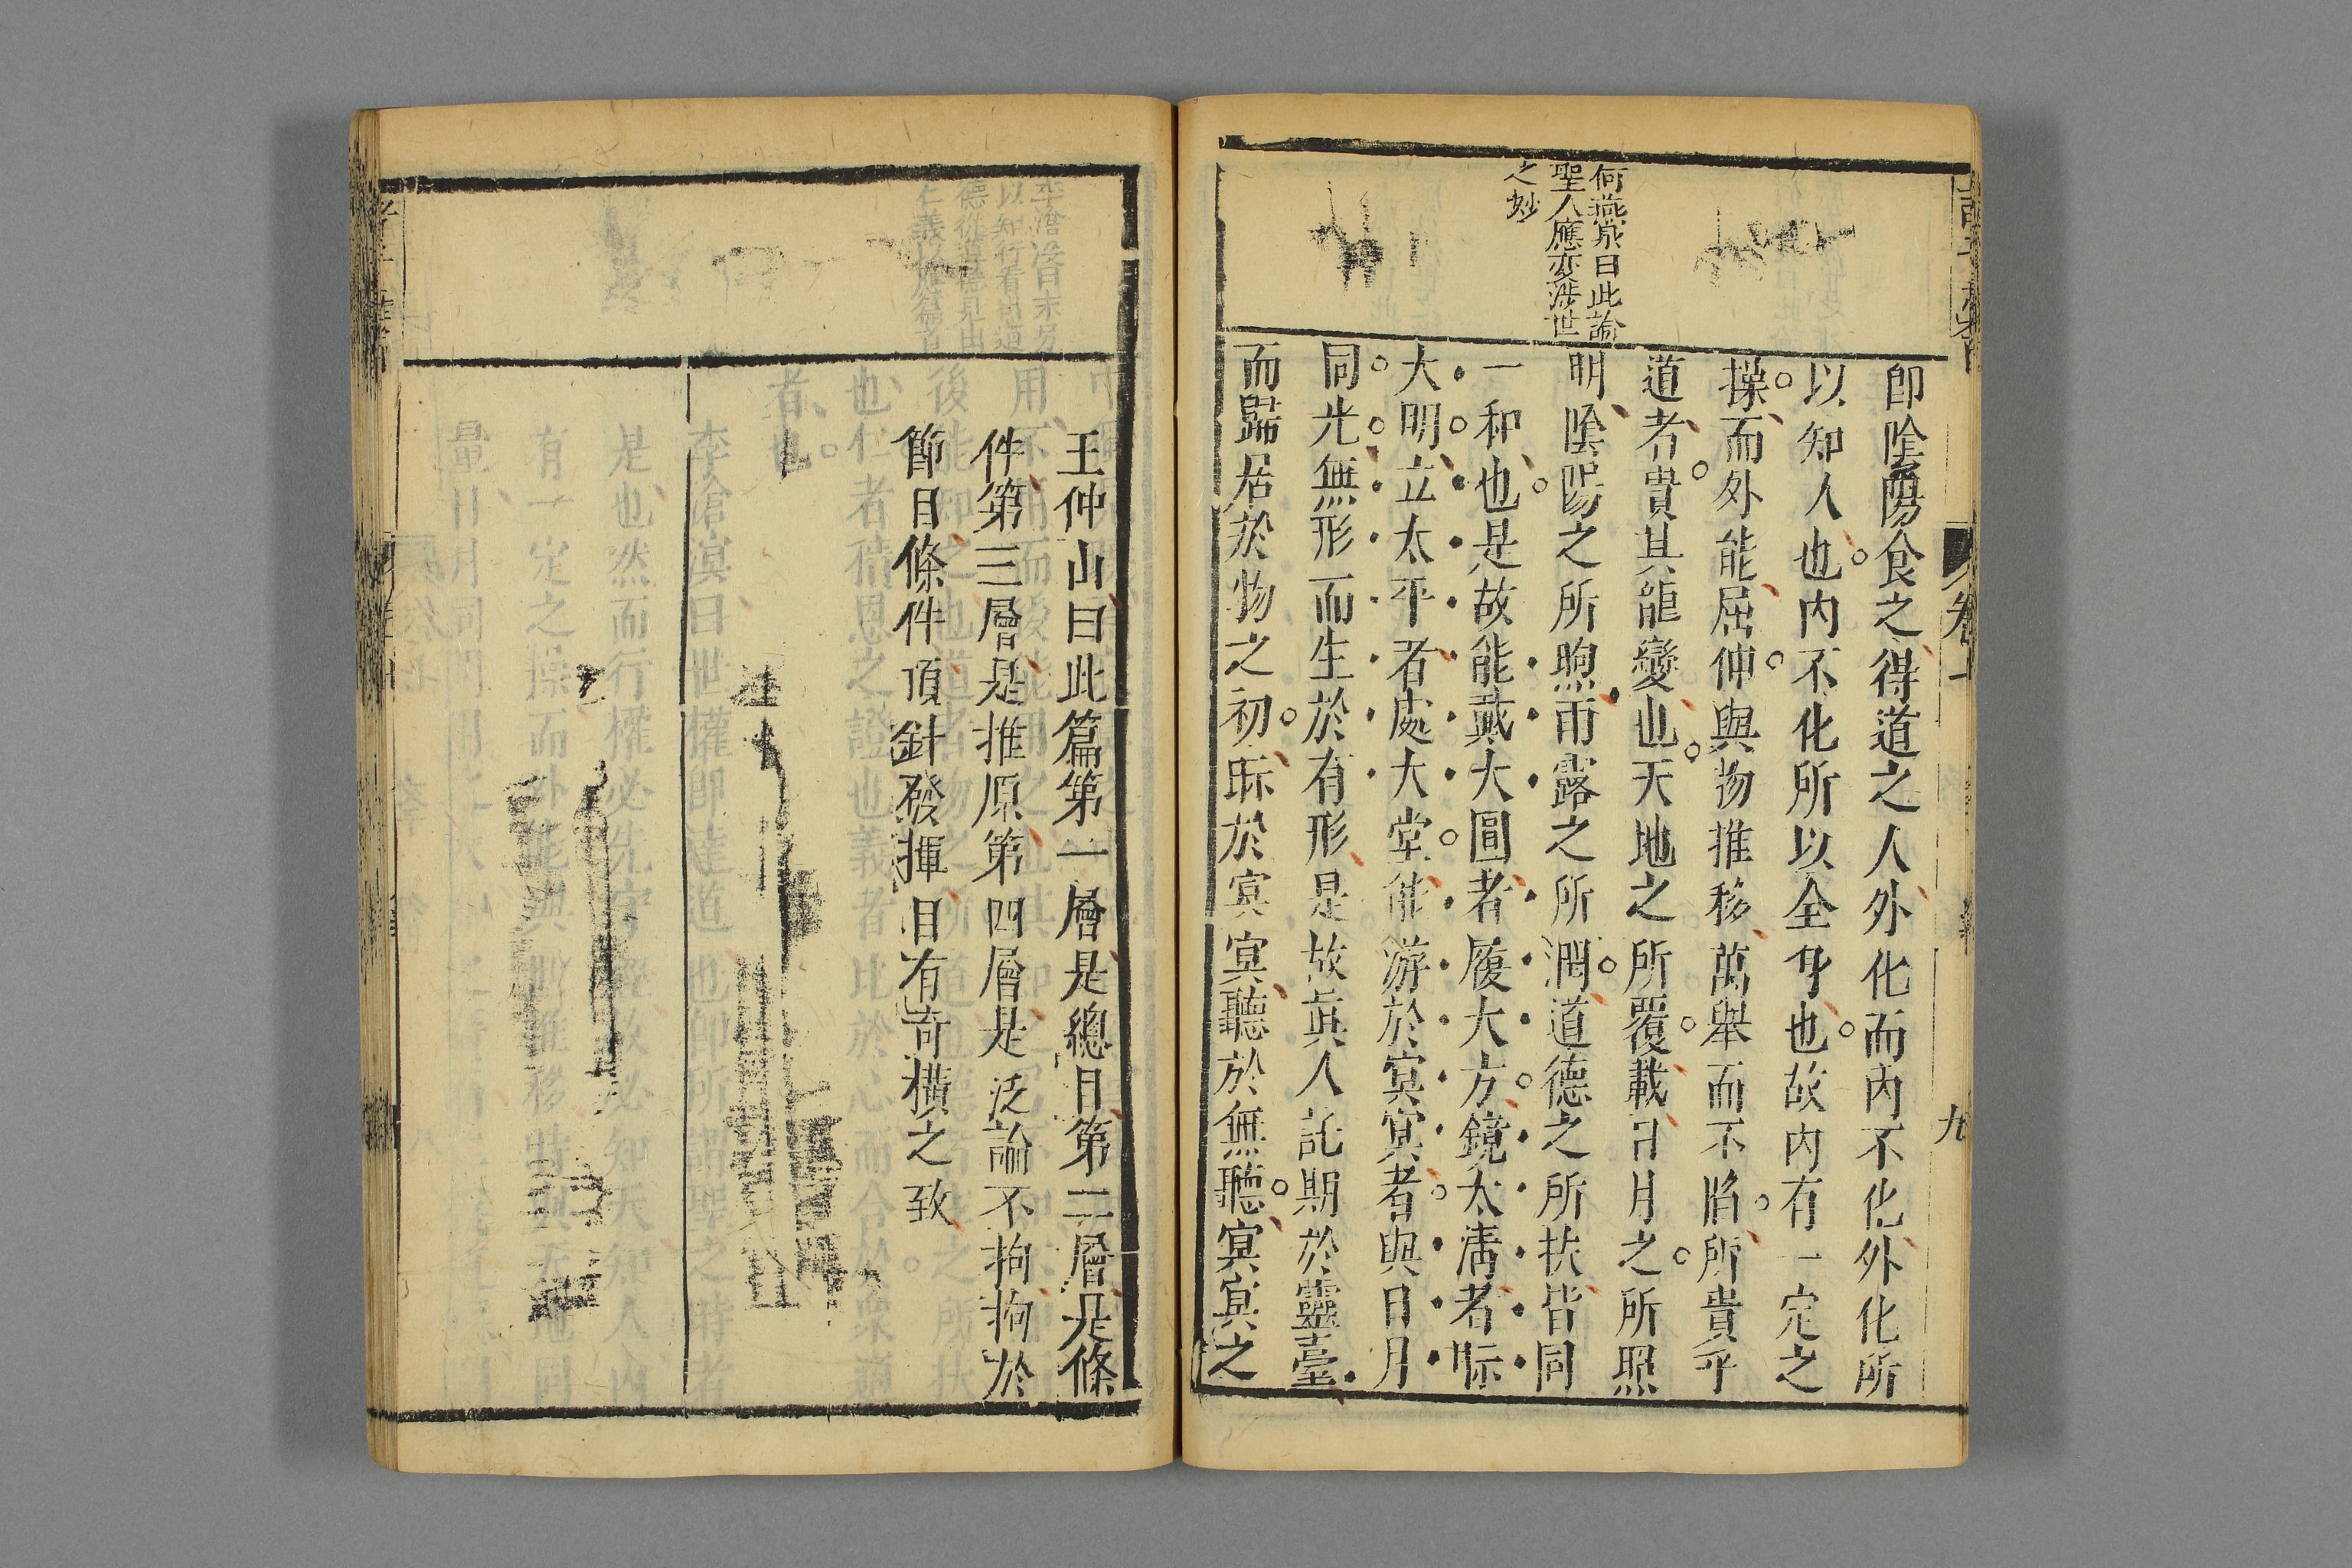 何燕泉曰此論
聖人應変涉世
之妙
卽陰陽食之得道之人外化而內不化外化所
以知人也內不化所以全身也故內有一定之
操而外能屈伸與物推移萬舉而不陷所貴乎
道者貴其龍變也天地之所覆載日月之所照
明陰陽之所煦雨露之所潤道德之所扶皆同
一和也是故能戴大圓者履大方鏡太淸者眎
大明立太平者處大堂能游於冥冥者與日月
同光無形而生於有形是故眞人託期於靈臺
而歸居於物之初眎於冥冥聽於無聽冥冥之
卷一
九
王仲山曰此篇第一層是總目第二層是條
件第三層是推原第四層是泛論不拘拘於
節目條件頂針發揮自有奇橫之致